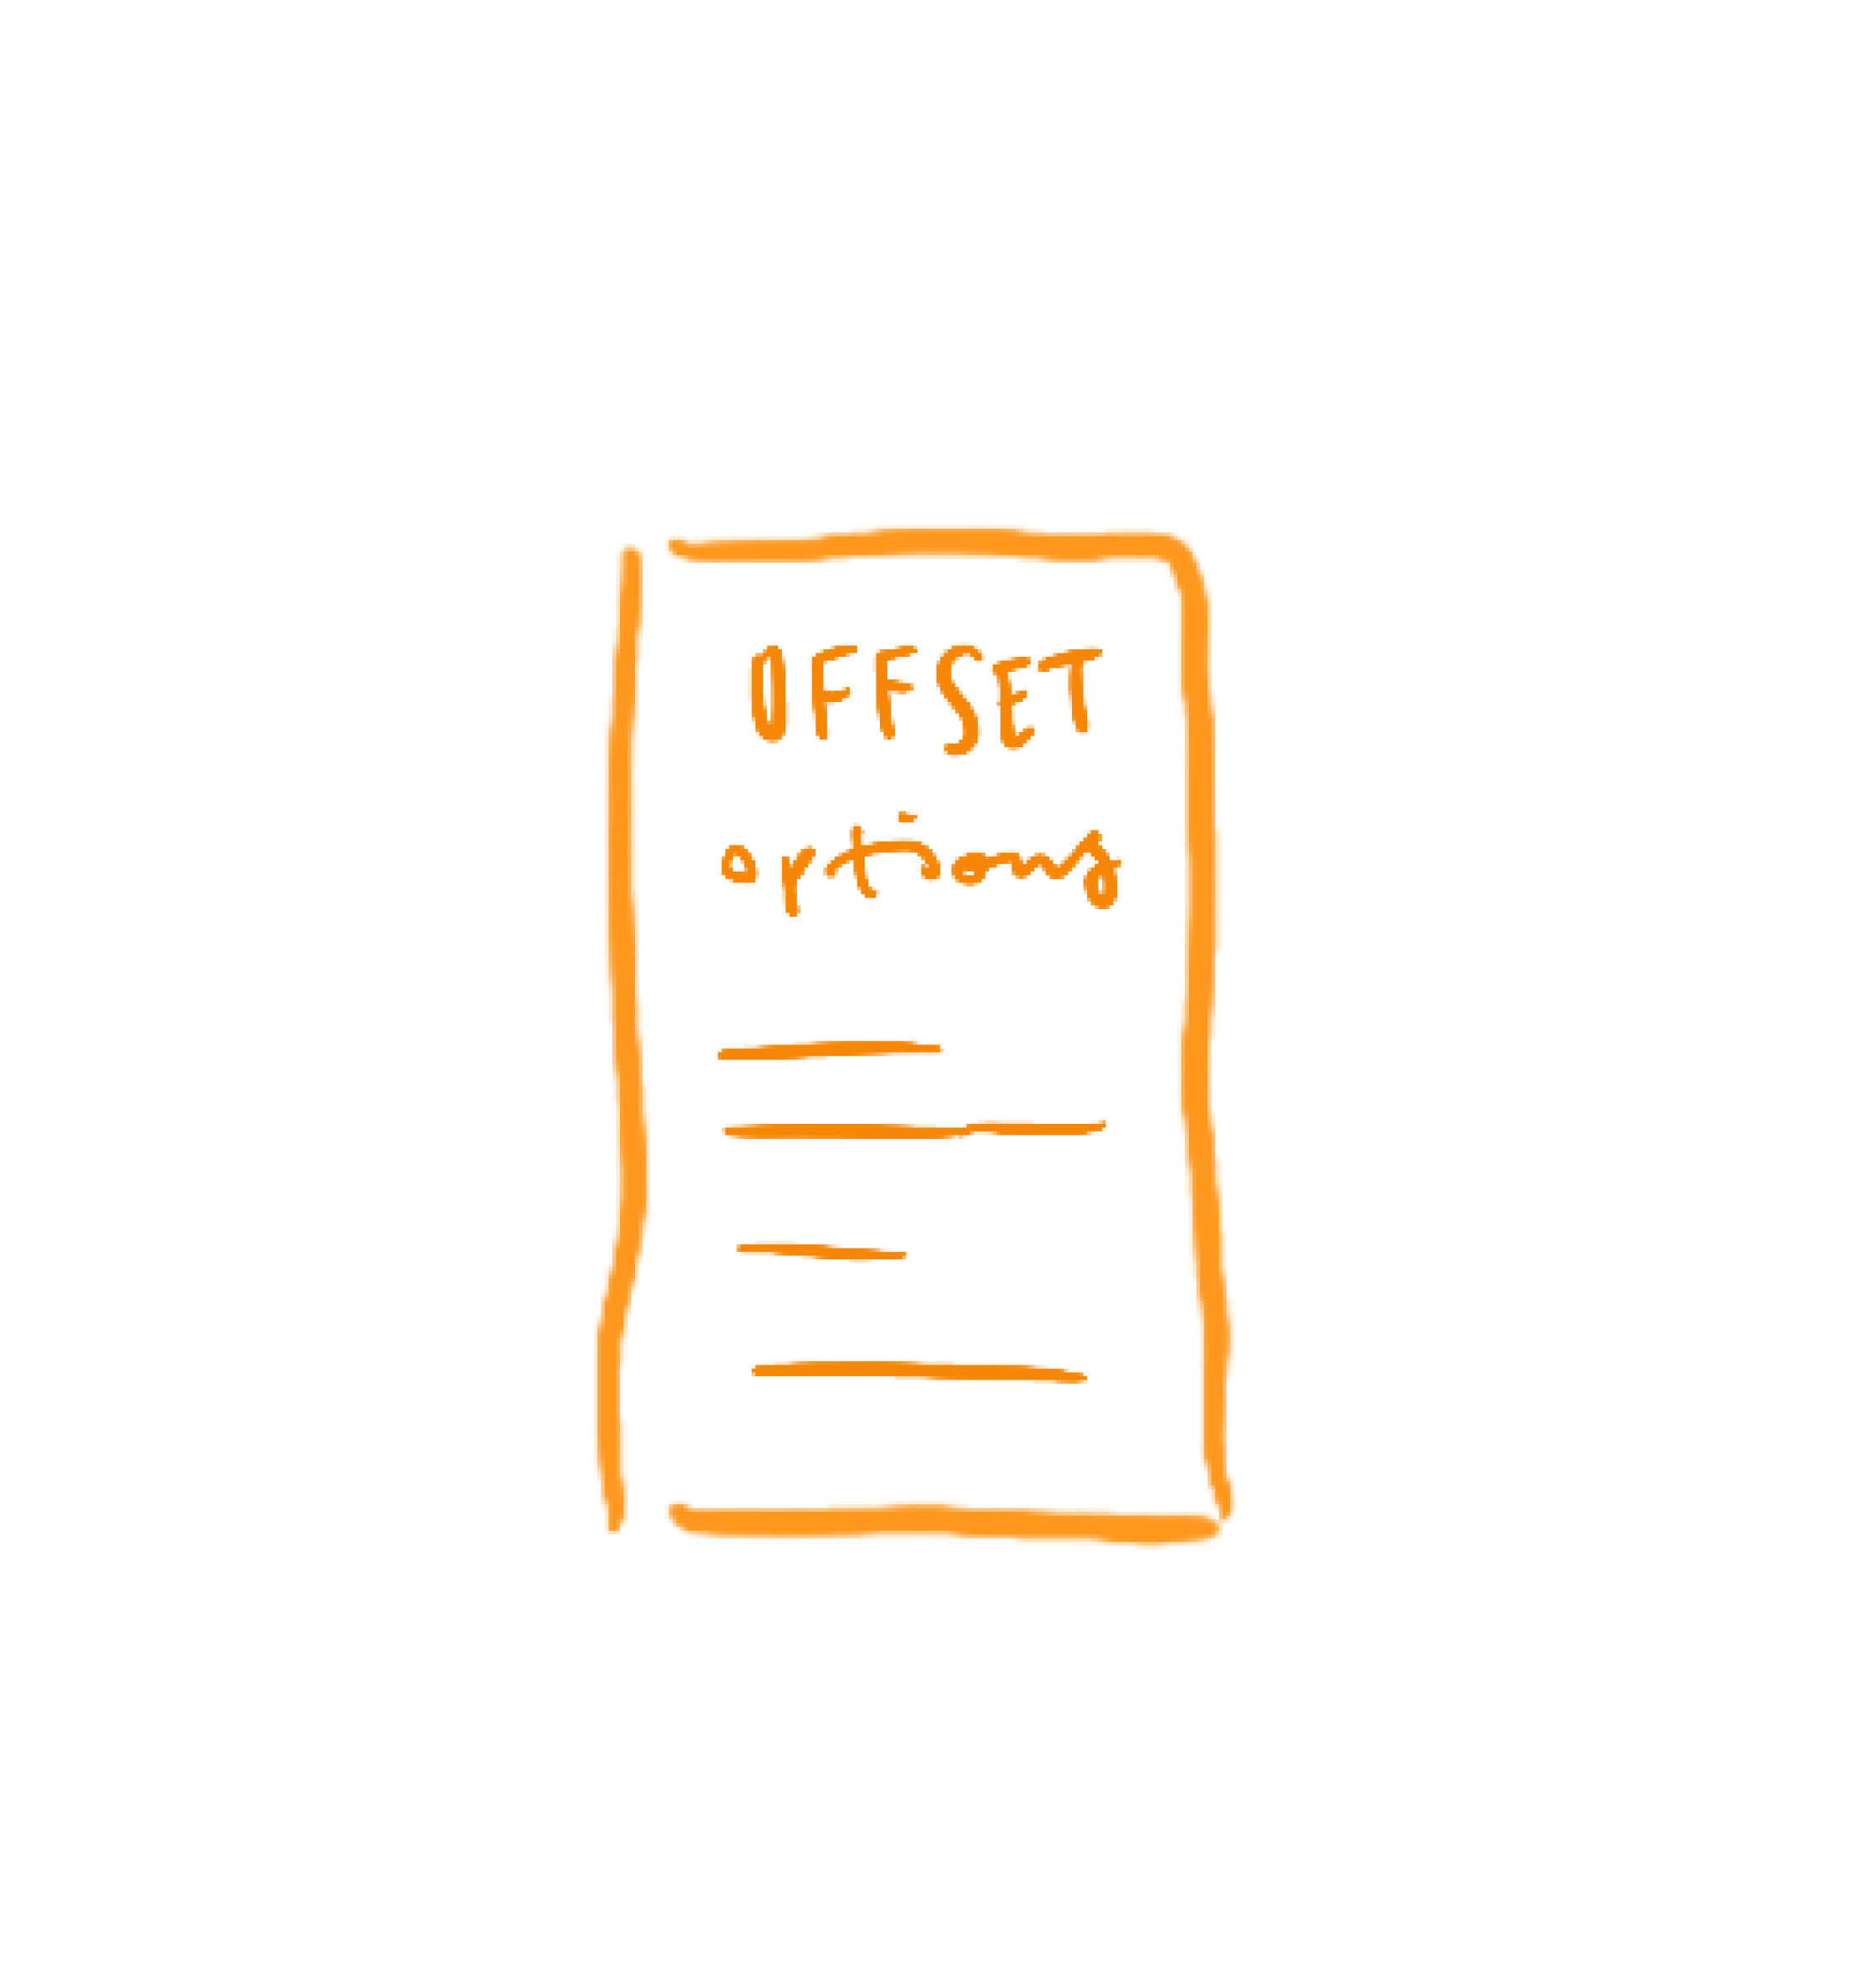 OFFSET
options